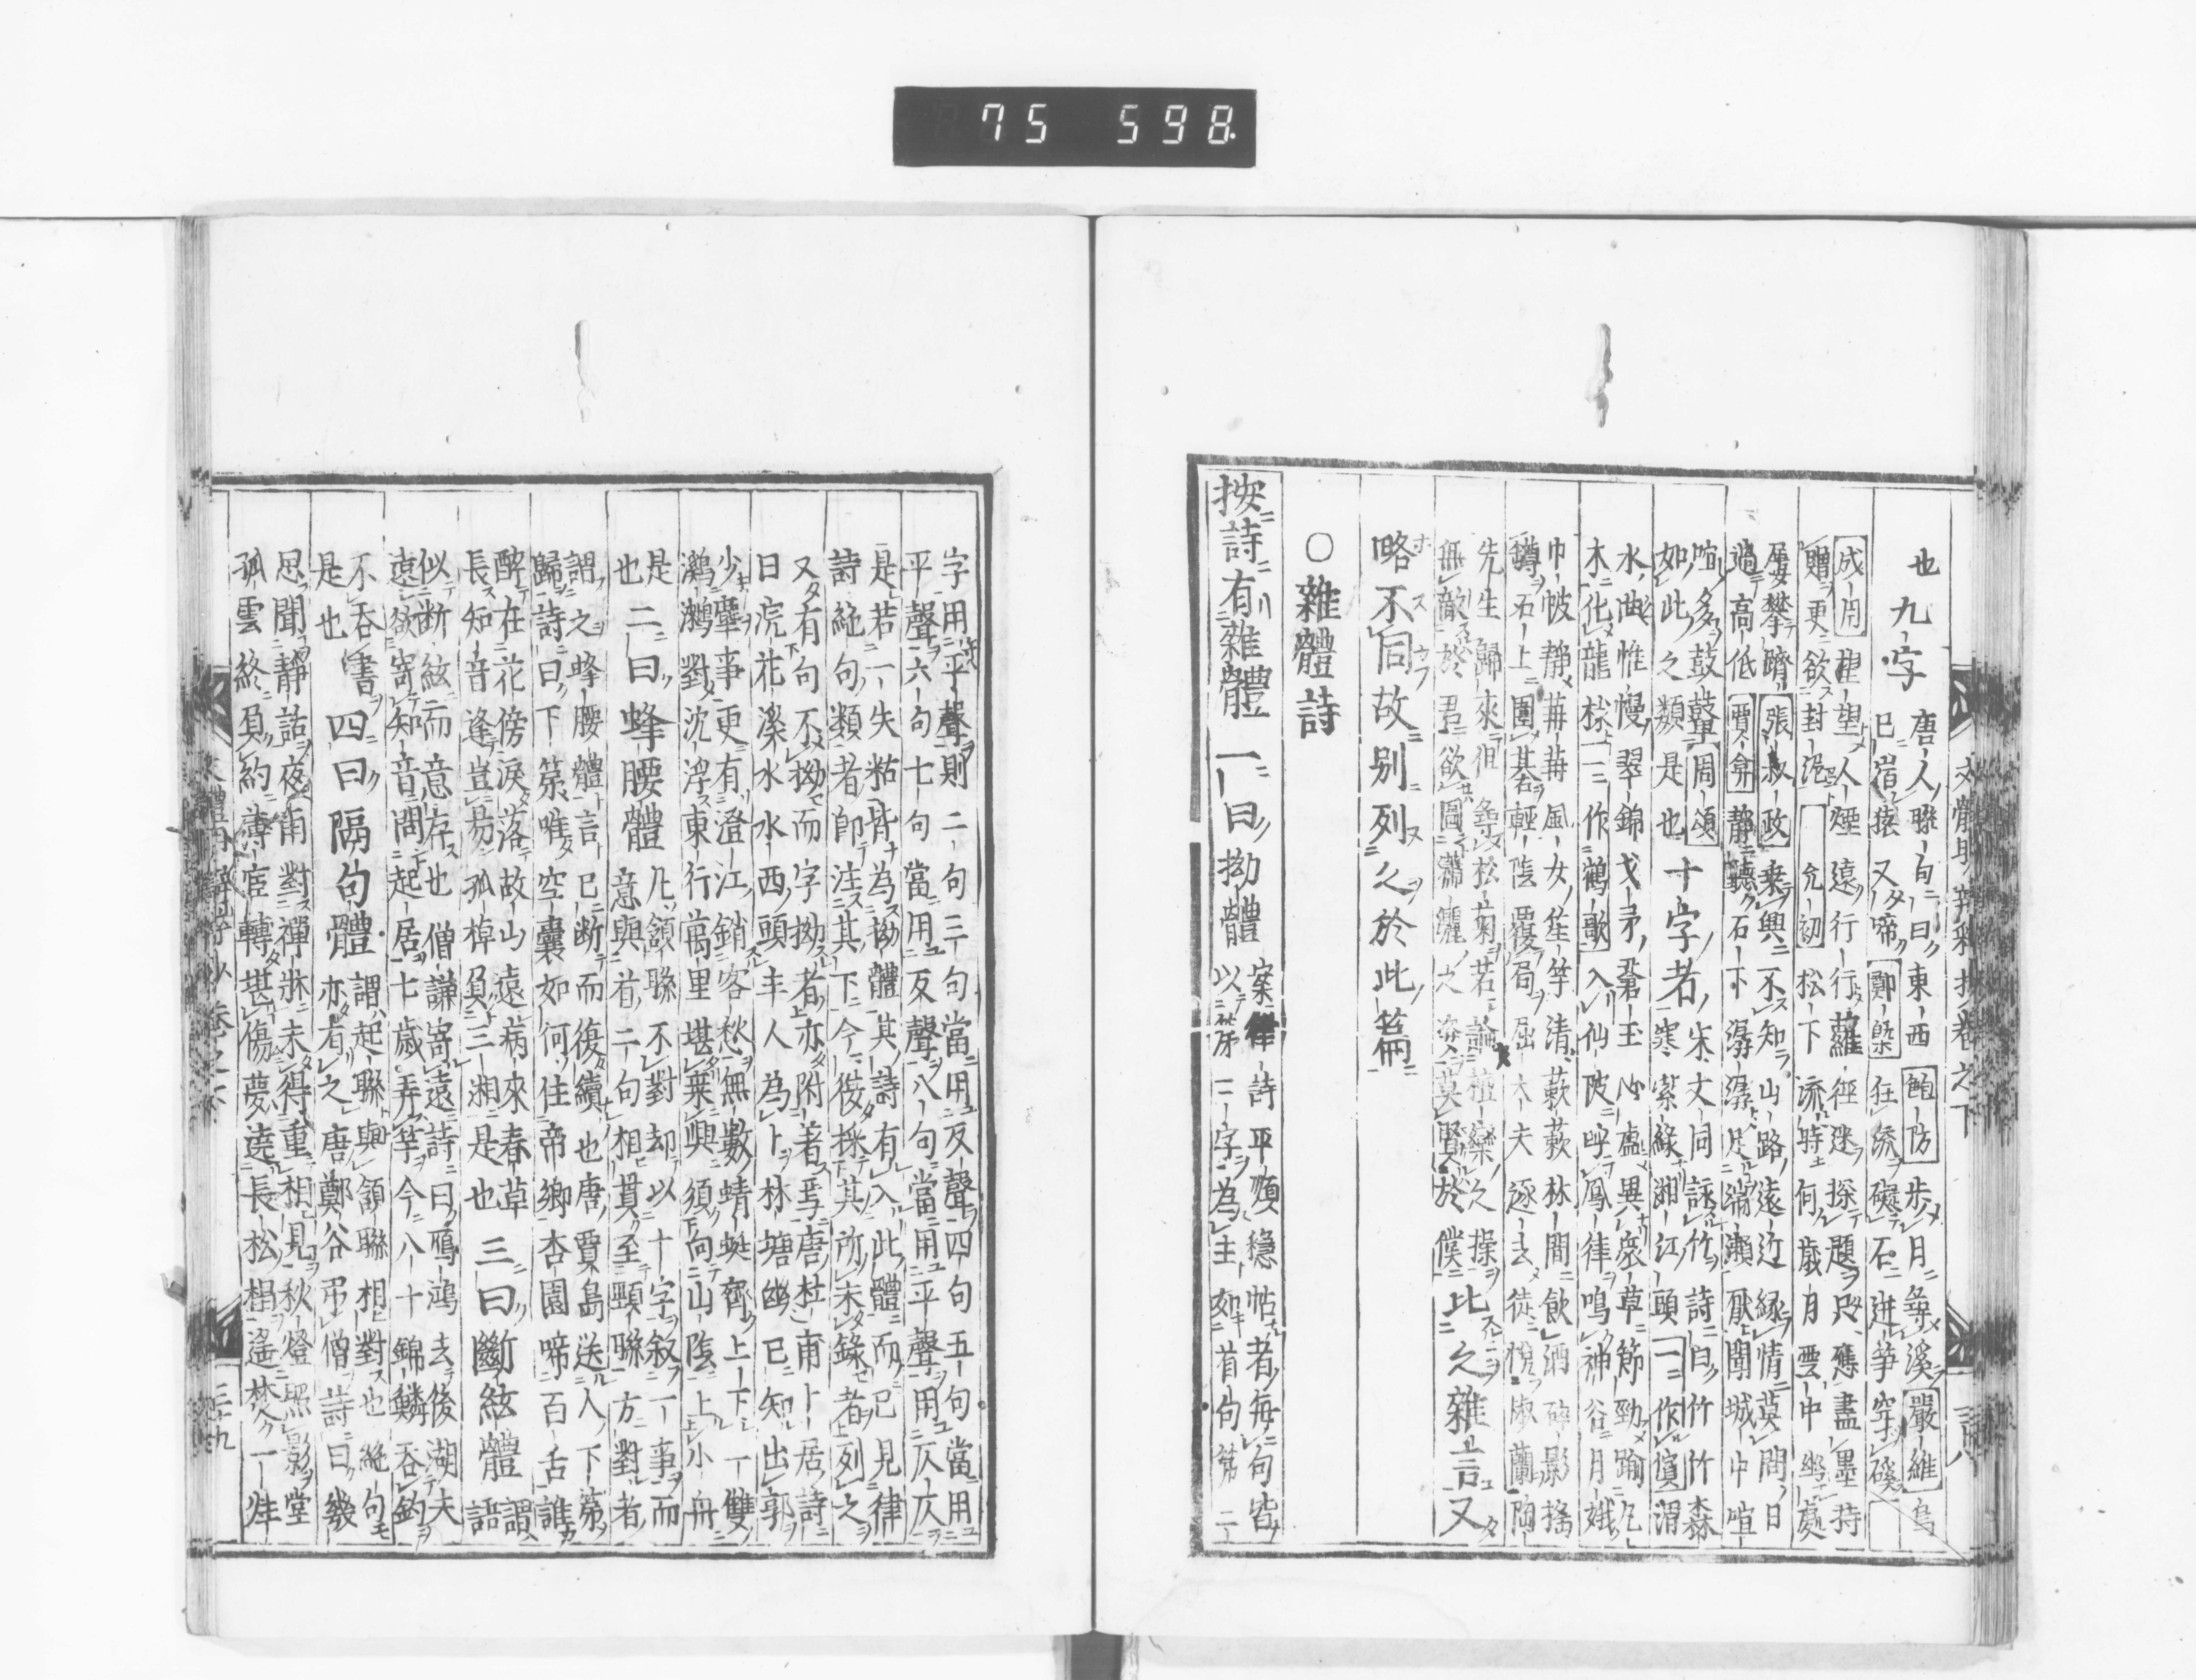 75 598
也九字
唐人聯句曰東西 鮑防 步月尋溪 嚴維 烏
已宿猿又啼 鄭槩 狂流礙石迸笋穿磎
成用 望望人煙遠行行蘿徑迷探題只應盡墨持
贈更欲封泥 允初 松下流時何歲月雲中幽處
屢攀躋 張叔政 乗興不知山路遠近緣情莫問日
過高低 賈弇 靜聽石下潺潺足湍瀬厭聞城中喧
喧多鼓鼙 周頌
如此之類是也十字者
宋文同詠竹詩曰竹竹森
寒潔綠湘江頭 一作濱 渭
水曲惟慢翠錦戈矛蒼玉心虛異衆草節勁踰凡
木化龍杖 一作鶴歌 入仙陂呼鳳律鳴神谷月娥
巾帔靜苒苒風女笙竽清蔌蔌林間飲酒碎影搖
罇石上圍棊輕陰覆局屈大夫逐去徒悅椒蘭陶
先生歸來但尋松菊若論檀欒之操
無敵於君欲圖瀟灑之姿莫賢於僕
此之雜言又
略不同故別列之於此篇
○雜體詩
按詩有雜體一曰拗體
案律詩平順穩帖者每句皆
以第二字為主如首句第二
字用平聲則二句三句當用反聲四句五句當用
平聲六句七句當用反聲八句當用平聲用仄仄
是若一失粘皆為拗體其詩有入此體而已見律
詩絶句類者即注其下今復採其所未錄者列之
又有句不拗而字拗者亦附著焉唐杜甫卜居詩
日浣花溪水水西頭主人為卜林塘幽已知出郭
少塵事更有澄江銷客愁無數蜻蜓齊上下一雙
鸂鷘對沈浮東行萬里堪乗興須向山陰上小舟
是也二曰蜂腰體
凡頷聯不對却以十字敘一事而
意與首二句相貫至頸聯方對者
謂之蜂腰體言已断而復續也唐賈島送人下第
歸詩曰下第唯空囊如何住帝鄉杏園啼百舌誰
醉在花傍淚落故山遠病來春草
長知音逢豈易孤棹負三湘是也
三曰斷絃體
謂語
似断絃而意存也僧謙寄遠詩曰鴈鴻去後湖天
遠欲寄知音問起居七歲弄竽今八十錦鱗吞釣
不吞書
是也
四曰隔句體
謂起聯與頷聯相對也絶句
亦有之唐鄭谷弔僧詩曰幾
思聞靜話夜雨對禪牀未得重相見秋燈照影堂
孤雲終負約薄宦轉堪傷夢遶長松榻遙焚一炷